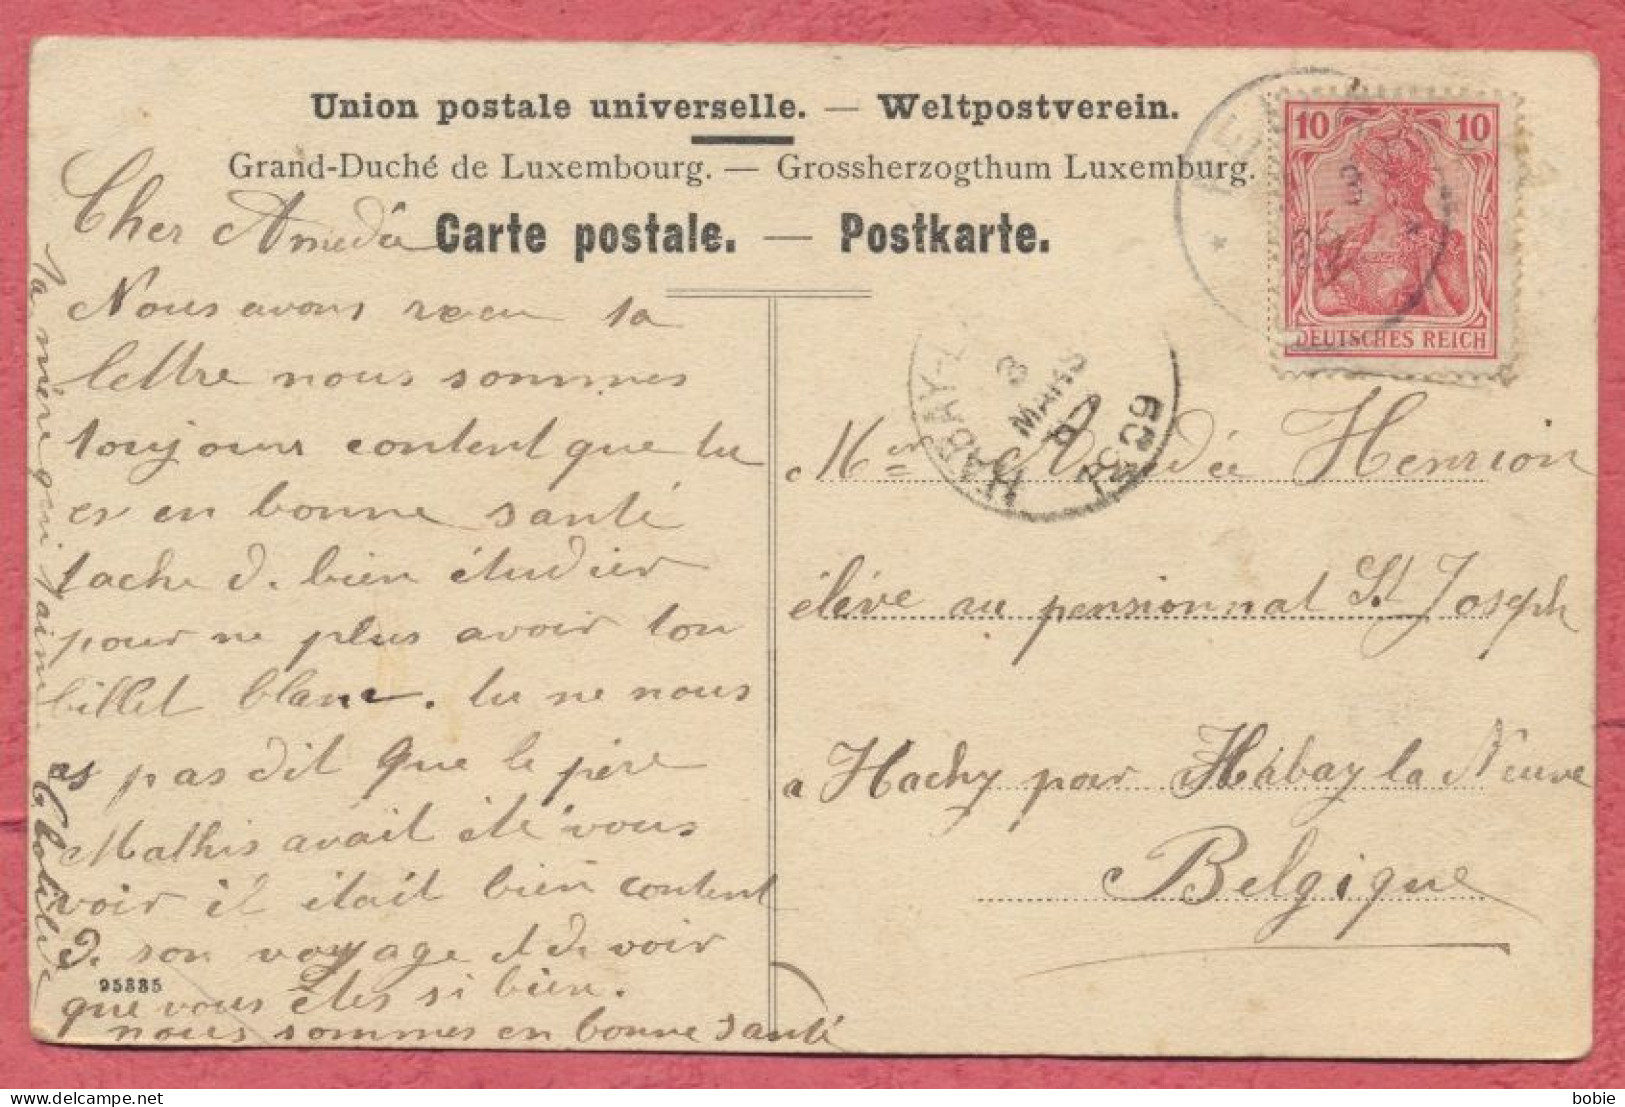 Union postale universelle. — Weltpostverein.
Grand-Duché de Luxembourg. — Grossherzogthum Luxemburg.
Carte postale. — Postkarte.
Cher Amedée
Nous avons recu ta
lettre nous sommes
toujours content que tu
es en bonne santé
tache de bien étudier
pour ne plus avoir ton
billet blanc. tu ne nous
as pas dit que le père
Mathis avait été vous
voir il était bien content
de son voyage et de voir
que vous êtes si bien.
nous sommes en bonne santé
Ta mère qui t'aime
Clotilde
95885
10 10
DEUTSCHES REICH
HABAY-L
3
MARS
1909
Mr Amedée Henrion
éléve au pensionnat St Joseph
a Hachy par Habay la Neuve
Belgique
bobie